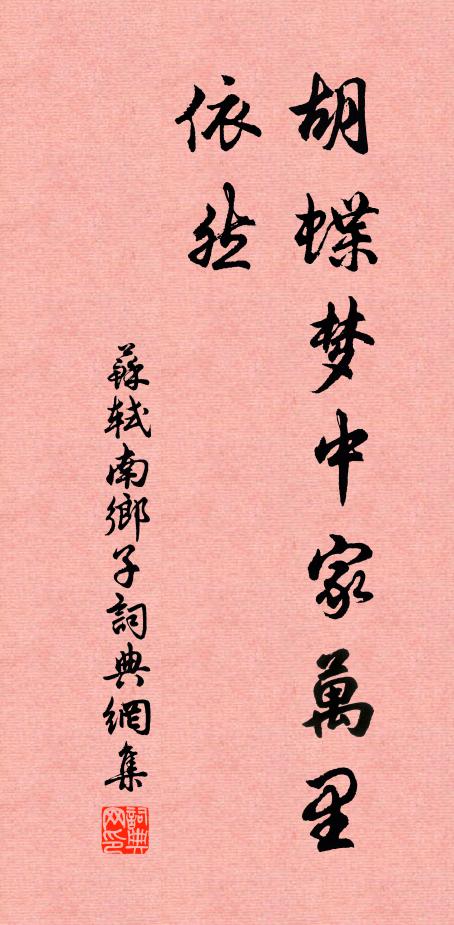 胡蝶梦中家萬里
依然
蘇軾南鄉子詞典網集
詞典
网印